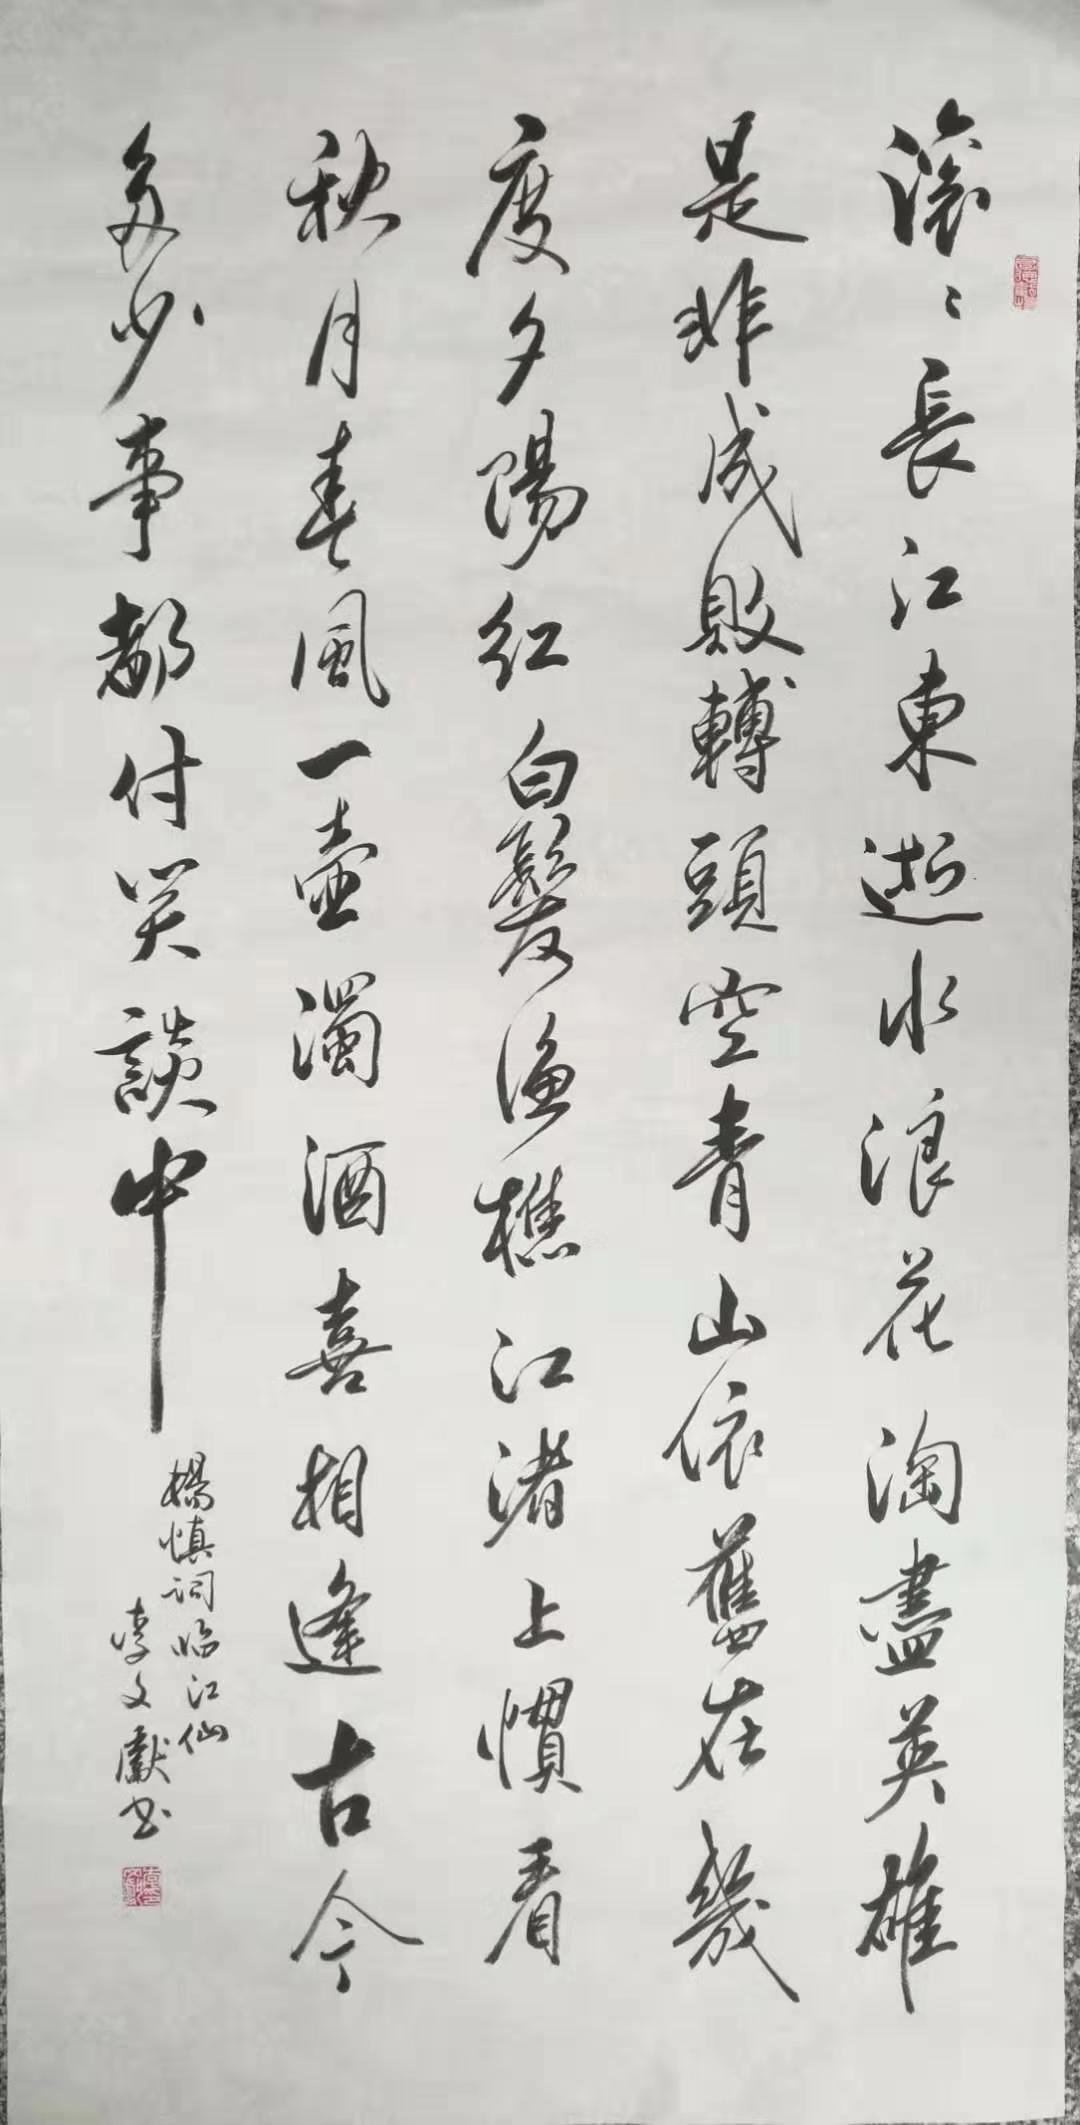 滚〻長江東逝水浪花淘盡英雄
是非成敗轉頭空青山依舊在幾
度夕陽紅白髮漁樵江渚上慣看
秋月春風一壺濁酒喜相逢古今
多少事都付笑談中
楊慎词临江仙
李文獻书